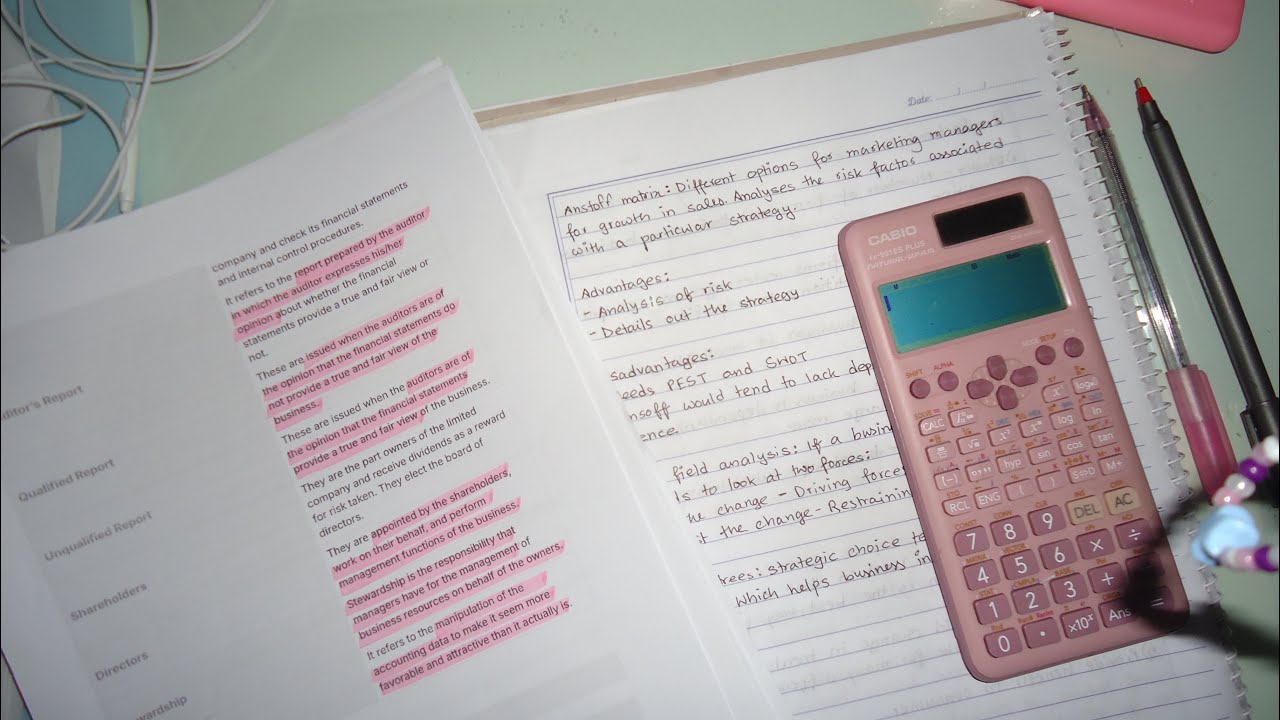 company and check its financial statements
and internal control procedures.
It refers to the report prepared by the auditor
in which the auditor expresses his/her
opinion about whether the financial
statements provide a true and fair view or
not.
These are issued when the auditors are of
the opinion that the financial statements do
not provide a true and fair view of the
business.
These are issued when the auditors are of
the opinion that the financial statements
provide a true and fair view of the business.
They are the part owners of the limited
company and receive dividends as a reward
for risk taken. They elect the board of
directors.
They are appointed by the shareholders,
work on their behalf, and perform
management functions of the business.
Stewardship is the responsibility that
managers have for the management of
business resources on behalf of the owners.
It refers to the manipulation of the
accounting data to make it seem more
favorable and attractive than it actually is.
uditor's Report
Qualified Report
Unqualified Report
Shareholders
Directors
wardship
Date: / /
Anstoff matrix: Different options for marketing managers
for growth in sales. Analyses the risk factor associated
with a particular strategy.
Advantages:
- Analysis of risk
- Details out the strategy
sadvantages:
eeds PEST and SWOT
nsoff would tend to lack dep
ence.
field analysis: If a busin
is to look at two forces:
he change - Driving force
t the change - Restrainin
rees: strategic choice to
which helps business in
CASIO
fx-991ES PLUS
NATURAL-V.P.A.M.
SHIFT ALPHA MODE SETUP
CALC log
ln
(-) hyp sin cos tan
RCL ENG ( ) S⇔D M+
7 8 9 DEL AC
4 5 6 × ÷
1 2 3 +
0 . ×10ˣ Ans =